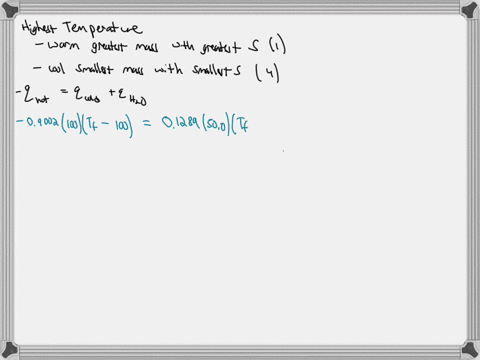 Highest Temperature
- warm greatest mass with greatest S (1)
- cool smallest mass with smallest S (4)
-q hot = q cold + q H2O
-0.9002(100)(Tf - 100) = 0.1289(50.0)(Tf